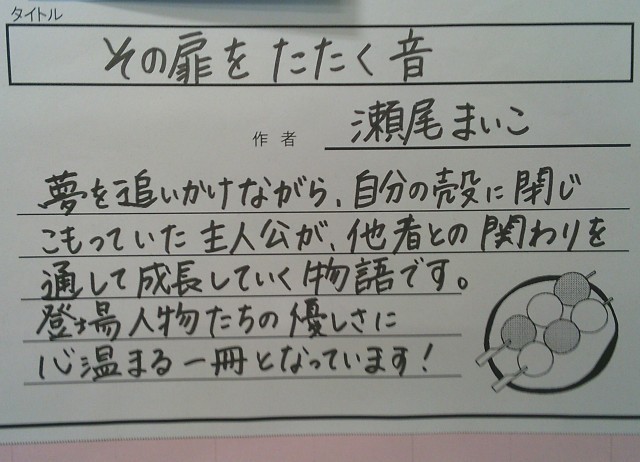 タイトル
その扉をたたく音
作者 瀬尾まいこ
夢を追いかけながら、自分の殻に閉じ
こもっていた主人公が、他者との関わりを
通して成長していく物語です。
登場人物たちの優しさに
心温まる一冊となっています!